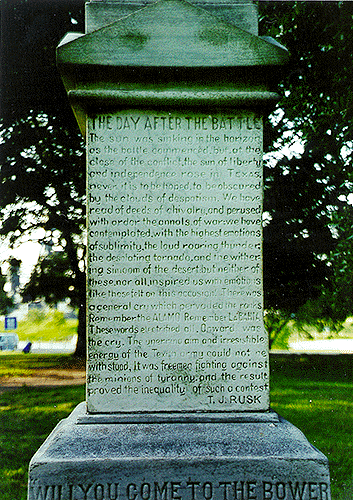 THE DAY AFTER THE BATTLE
The sun was sinking in the horizon
as the battle commenced, but at the
close of the conflict, the sun of liberty
and independence rose in Texas,
never, it is to be hoped, to be obscured
by the clouds of despotism. We have
read of deeds of chivalry, and perused
with ardor the annals of war; we have
contemplated, with the highest emotions
of sublimity, the loud roaring thunder,
the desolating tornado, and the wither-
ing simoom of the desert, but neither of
these, nor all, inspired us with emotions
like those felt on this occasion. There was
a general cry which pervaded the ranks.
Remember the ALAMO. Remember LA BAHIA.
These words electrified all. Onward was
the cry. The unerring aim and irresistible
energy of the Texan army could not be
withstood, it was freemen fighting against
the minions of tyranny, and the result
proved the inequality of such a contest
T. J. RUSK
WILL YOU COME TO THE BOWER